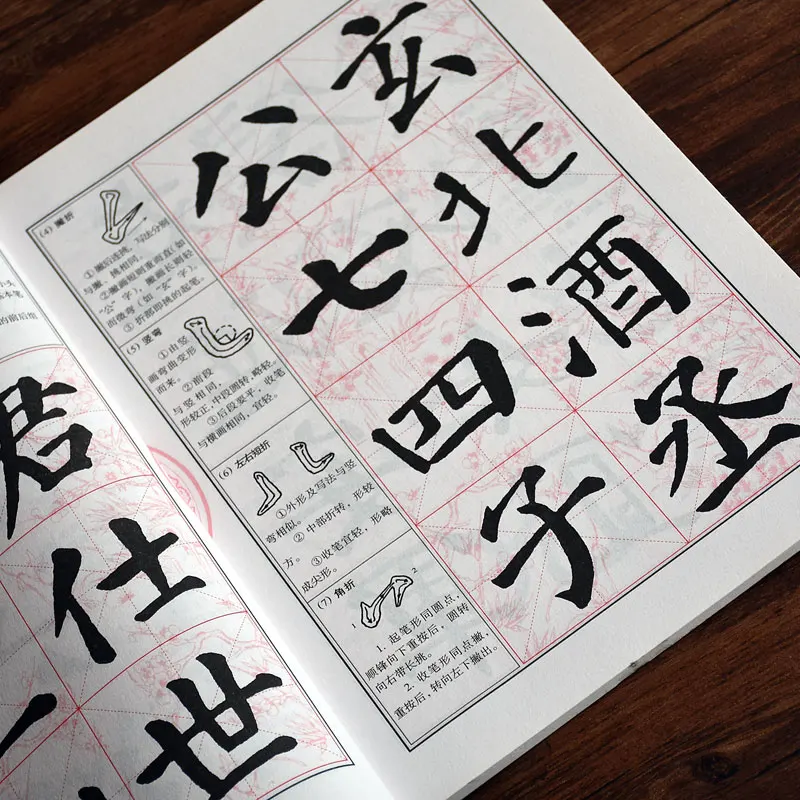 君
仕
世
(4) 撇折
①撇后连挑,写法分别
与撇、挑相同。
②撇画短则重而直(如
“公”字),撇画长则轻
而微弯(如“玄”字)。
③折部即挑的起笔。
(5) 竖弯
①由竖
画弯曲变形
而来。②前段
与竖相同,
形较正,中段圆转,略轻。
③后段要平,收笔
与横画相同,宜轻。
(6) 左右短折
①外形及写法与竖
弯相似。
②中部折转,形较
方。③收笔宜轻,形略
成尖形。
(7) 角折
1 2
1. 起笔形同圆点,
顺锋向下重按后,圆转
向右带长挑。
2. 收笔形同点撇,
重按后,转向左下撇出。
公 玄
七 北
四 酒
子 丞